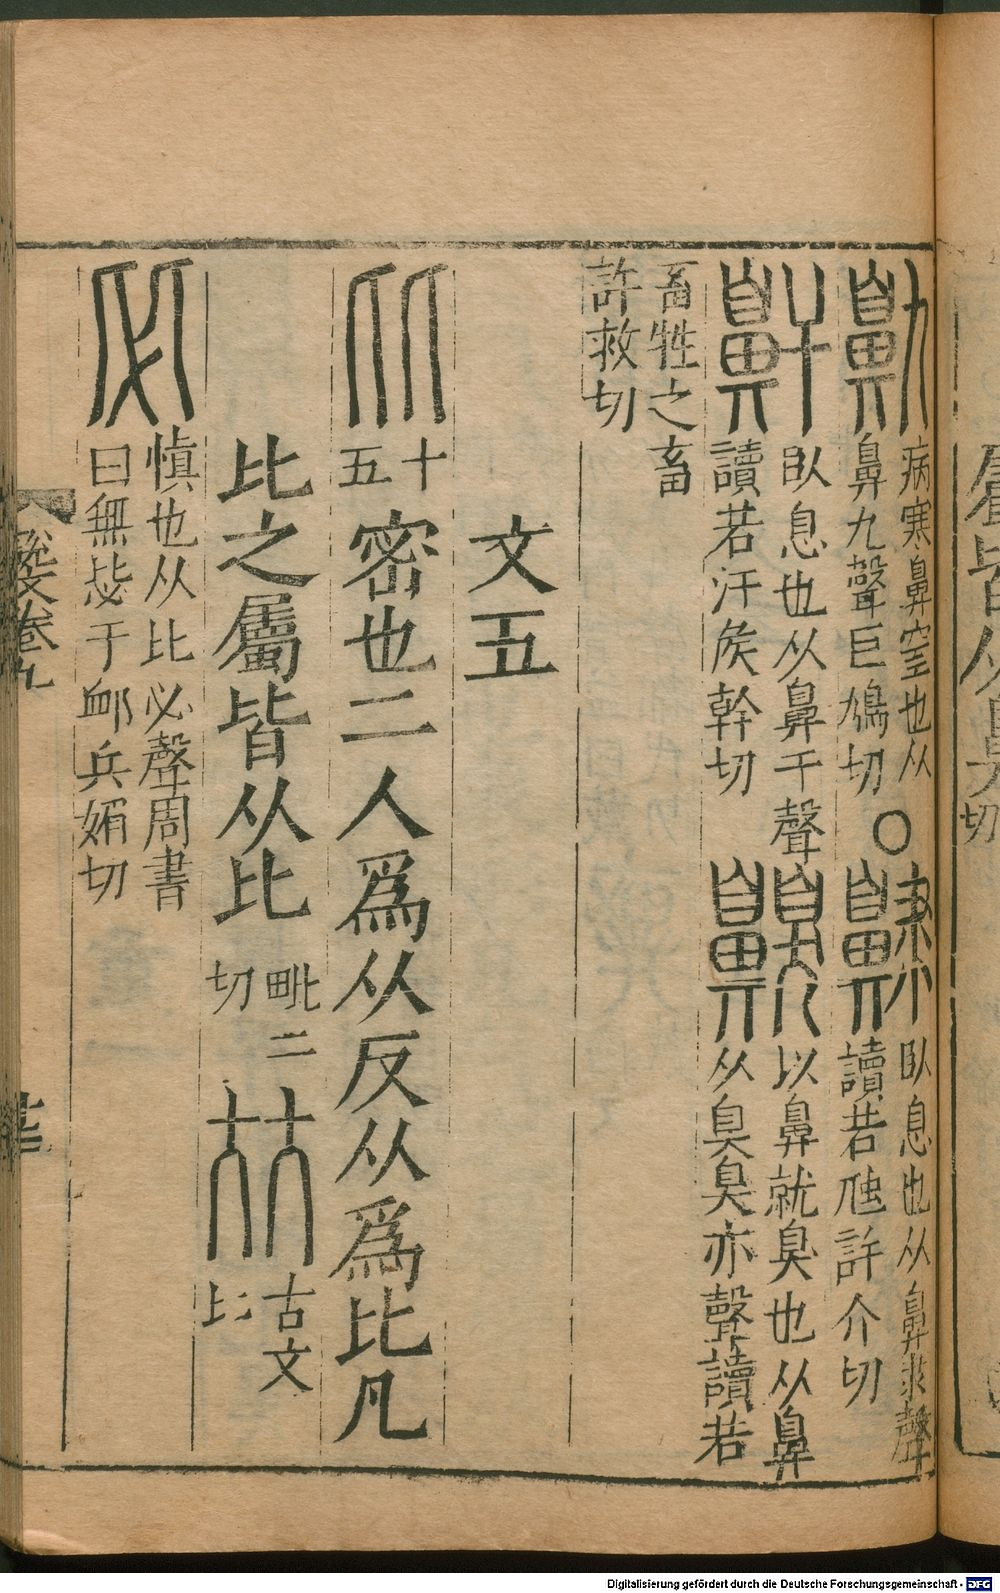 鼽 病寒鼻窒也从鼻九聲巨鳩切 〇 䶐 臥息也从鼻隶聲讀若虺許介切
鼾 臥息也从鼻干聲讀若汗矦幹切 齅 以鼻就臭也从鼻从臭臭亦聲讀若
畜牲之畜許救切
文五
比 十五 密也二人爲从反从爲比凡
比之屬皆从比 毗二切 𣬅 古文比
毖 愼也从比必聲周書曰無毖于卹兵媚切
說文卷九
屬皆从鼻
切
Digitalisierung gefördert durch die Deutsche Forschungsgemeinschaft - DFG